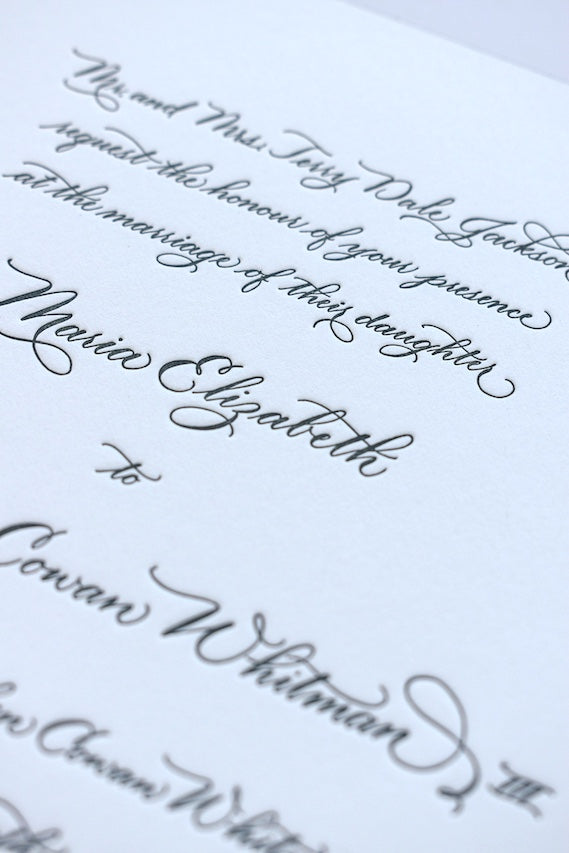 Mr. and Mrs. Terry Dale Jackson
request the honour of your presence
at the marriage of their daughter
Maria Elizabeth
to
Cowan Whitman III
Cowan